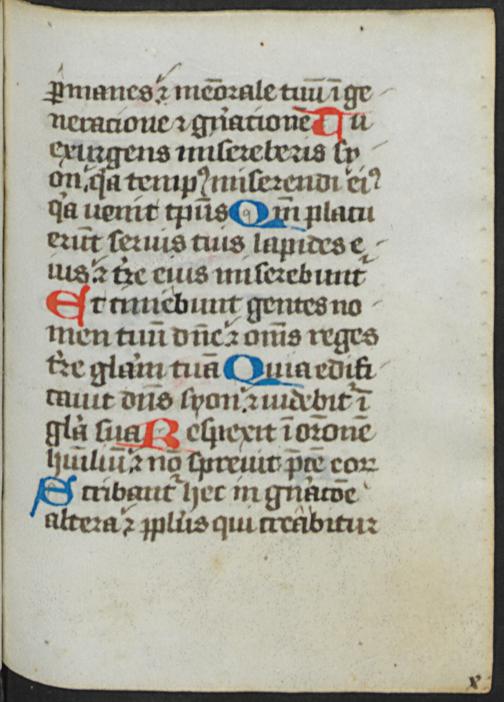 ꝑmanes ⁊ meōrale tuū ī ge
neracione ⁊ gn̄acione Tu
exurgens misereberis sy
on, q̄a temp⁹ miserendi ei⁹
q̄a uenit tp̄us Qm̄ placu
erūt seruis tuis lapides e
ius ⁊ tr̄e eius miserebunt
Et timebunt gentes no
men tuū dn̄e ⁊ om̄s reges
tr̄e glaȳm tuā Quia edifi
cauit dn̄s syon ⁊ uidebit᷑ ī
gl̄a sua Respexit ī orōne
hūiliū ⁊ nō spreuit p̄ce eoꝝ
Scribant᷑ hec in gn̄acōe
altera ⁊ ppl̄us qui creabitur
x